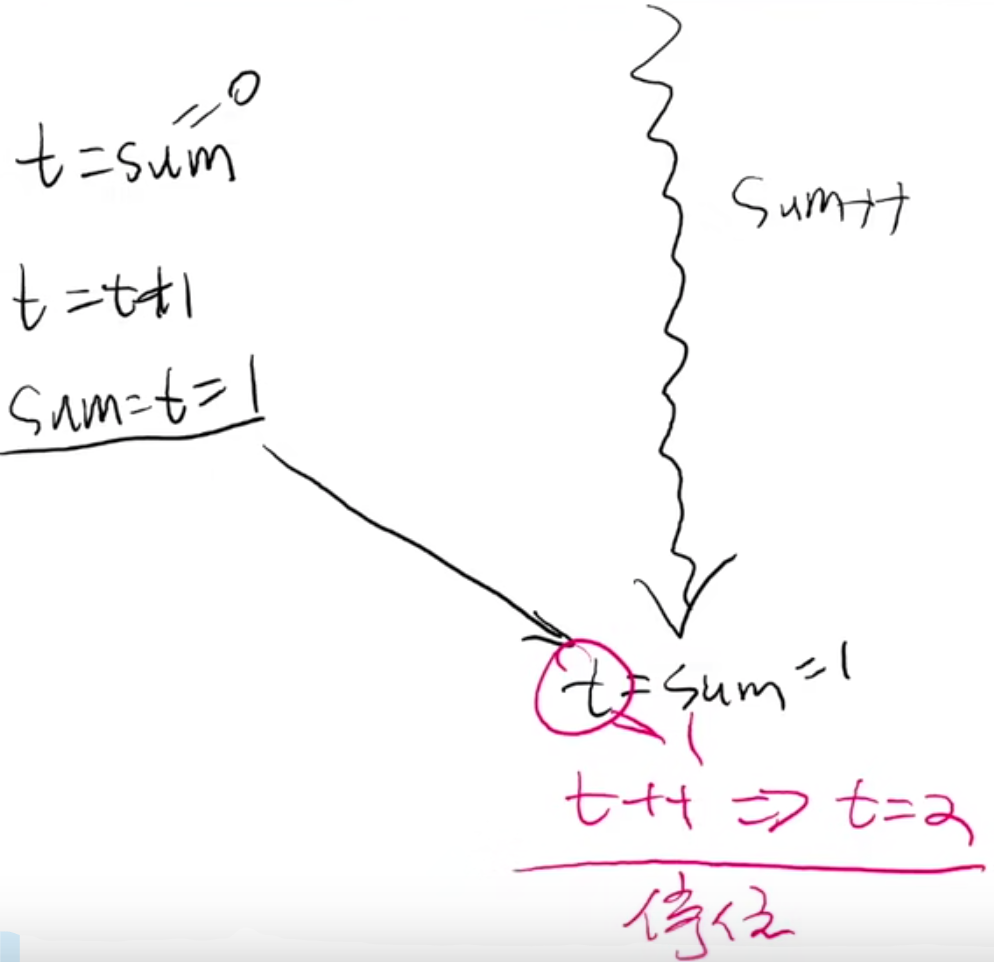 t=sum=0
t=t+1
sum=t=1
Sum++
t=sum=1
1
t++ ⇒ t=2
停住